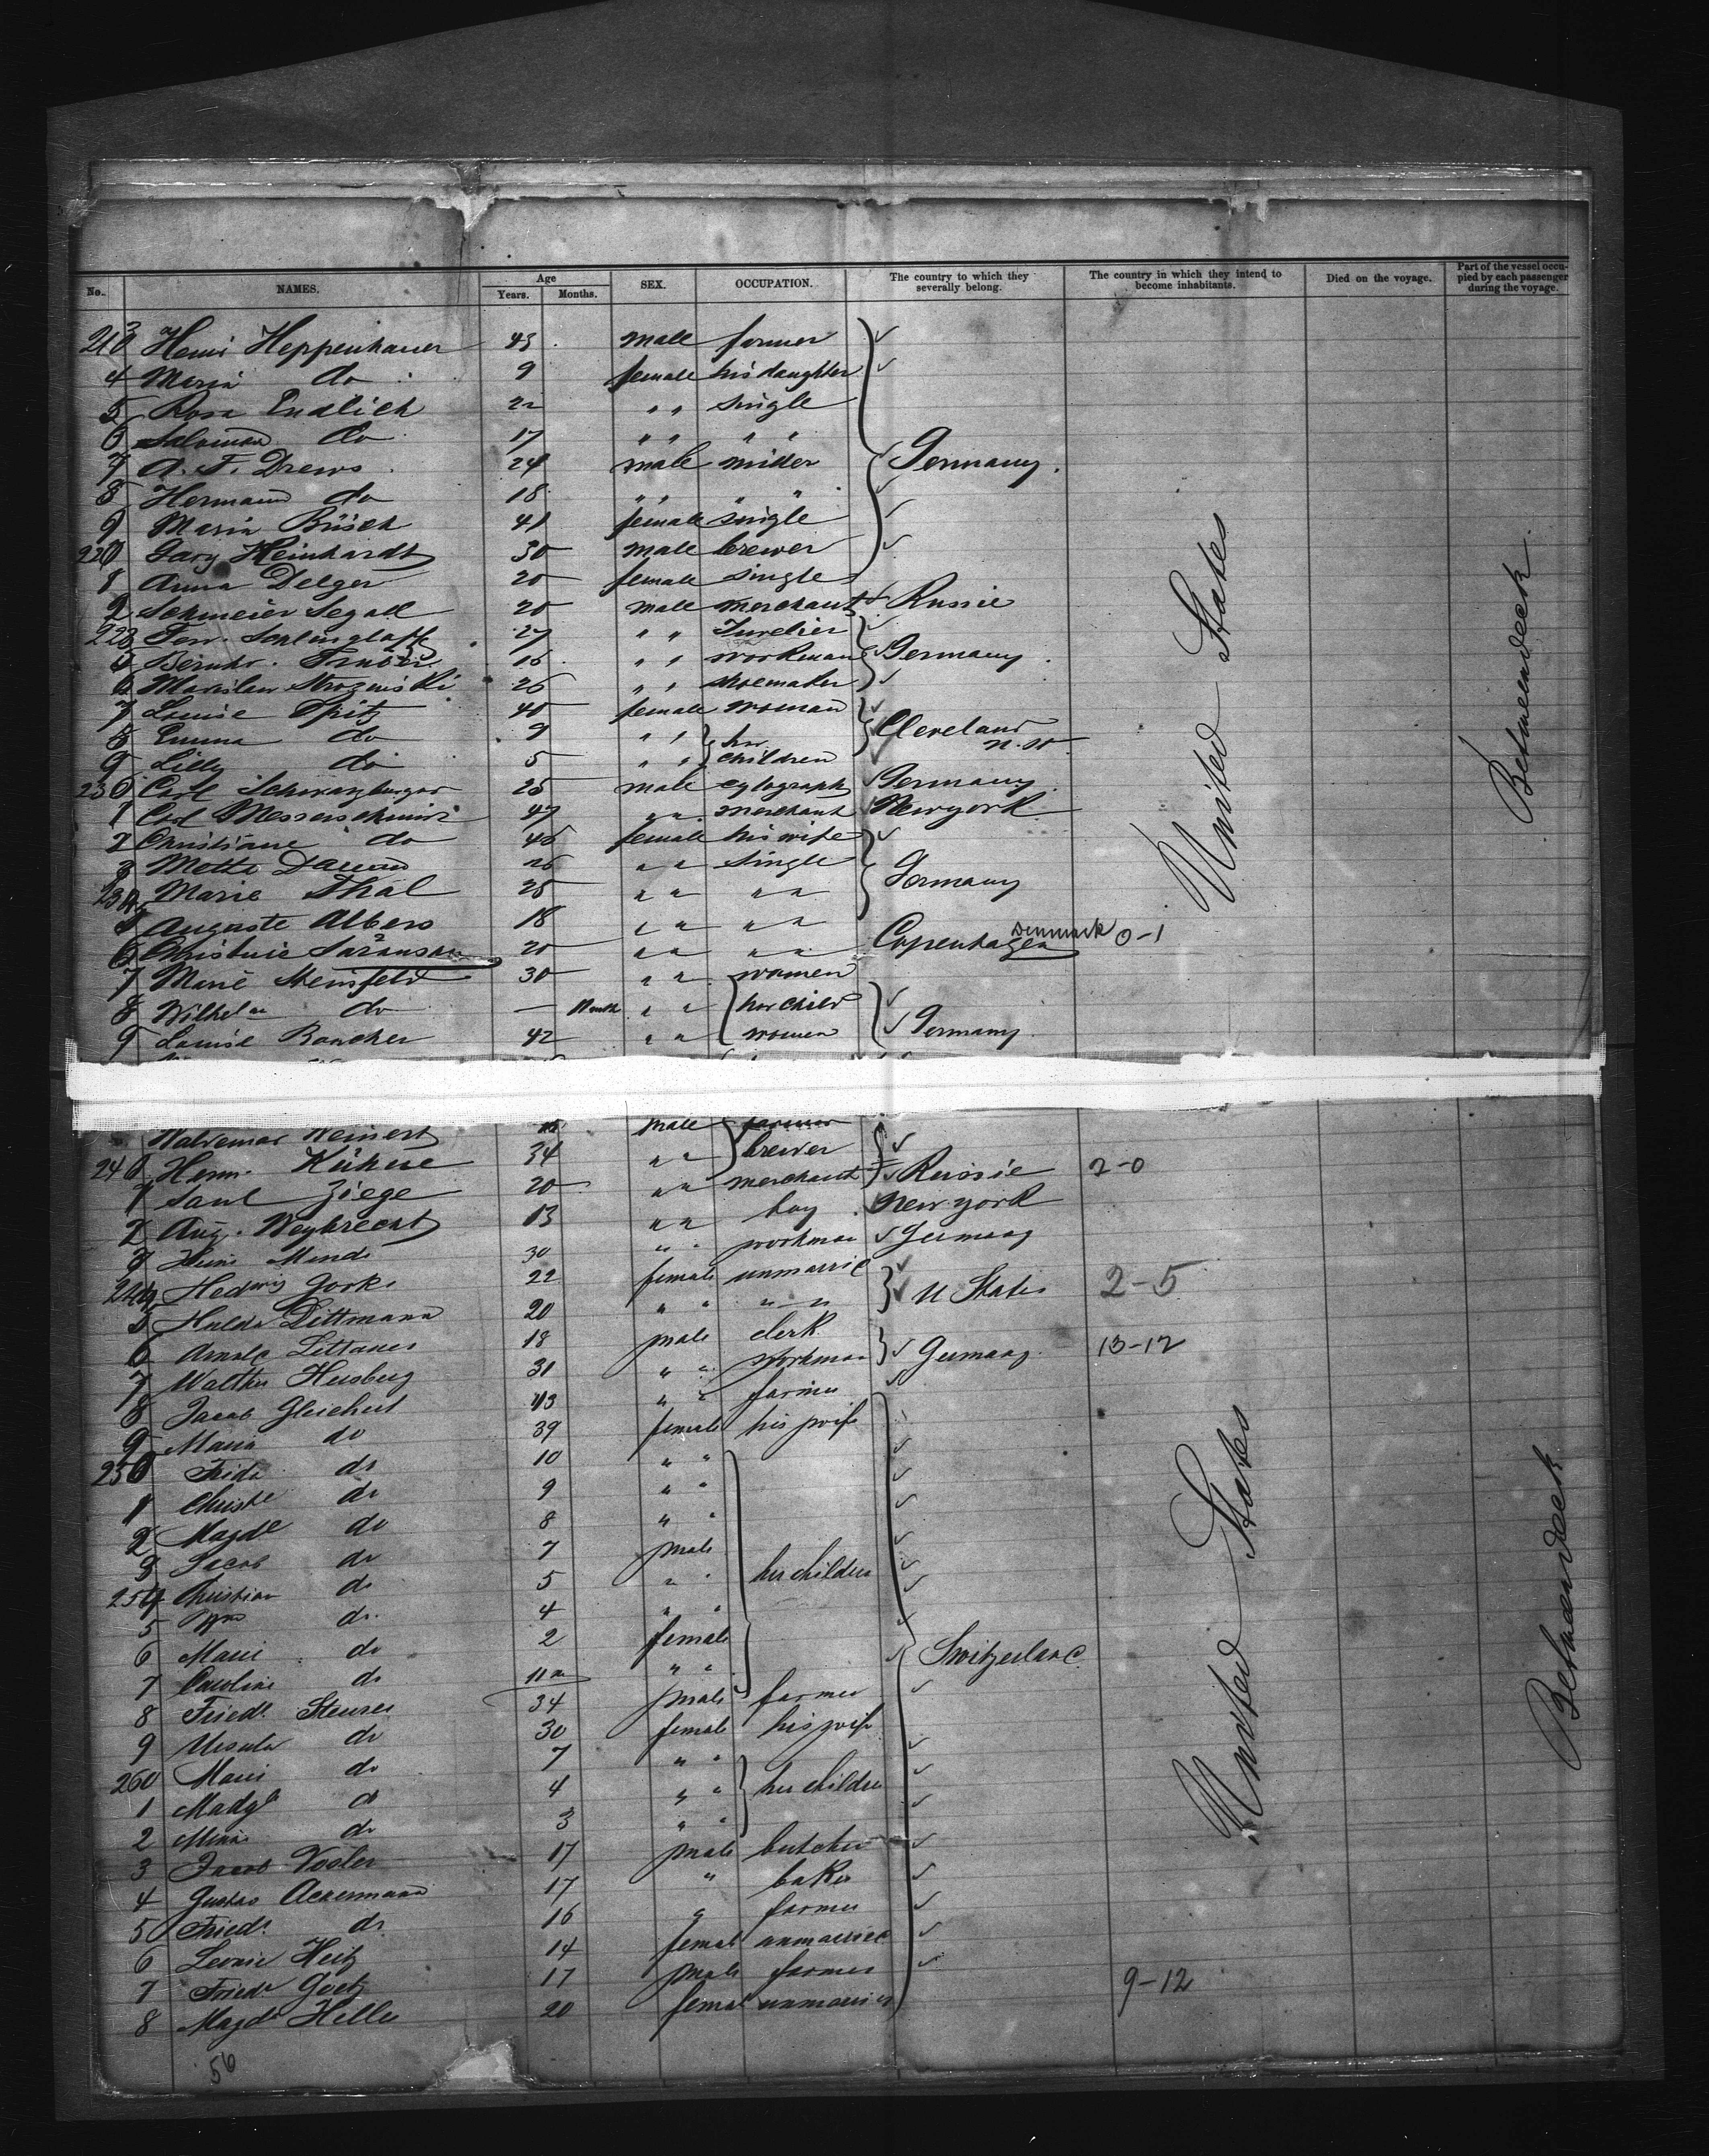 No. NAMES. Age Years. Months. SEX. OCCUPATION. The country to which they severally belong. The country in which they intend to become inhabitants. Died on the voyage. Part of the vessel occupied by each passenger during the voyage.
213 Heppenhauer 43 male farmer
4 Maria do 9 female his daughter
5 Rosa Endlich 22 " " single
6 Salomea do 17 " " " "
7 A. F. Drews 24 male Germany.
8 Hermann do 18 " " " "
9 Maria Büsch 41 female single
220 Heinhardt 30 male brewer
Anna Delger 20 female single
2 Schmeier Segall 20 male merchant Russie
223 27 " " Juvelier
Bernhr. 16 " " workman Germany.
6 26 " " shoemaker
7 Louise Spitz 40 female woman
8 Emma do 9 " " her Cleveland
9 Lilly do 5 " " children
230 Carl Schwarzburger 25 male Germany
1 Carl Messerschmidt 47 " " merchant Newyork
2 Christiane do 46 female his wife
3 26 " " single Germany
234 Marie Thal 25 " " " "
5 Auguste Albers 18 " " " "
6 20 " " " " Copenhagen Denmark 0-1
7 Marie Steinsfeld 30 " " women
8 Wilhelm do — 11 month " " her child
9 Louise Boucher 42 " " women Germany
Waldemar Weinert male farmer
240 Herm. Kühne 34 " " brewer
1 Saul Ziege 20 " " merchant Russie 2-0
2 Aug. Weybrecht 13 " " boy New york
3 30 " " workman Germany
244 Hedwig 22 female unmarried
5 Hulda Dittmann 20 " " " " U States 2-5
6 18 male clerk
7 31 " " workman Germany 13-12
8 Jacob 43 " " farmer
9 Maria do 39 female his wife
250 Frida do 10 " "
1 do 9 " "
2 do 8 " "
3 Jacob do 7 male
254 Christian do 5 " " her children
5 do 4 " "
6 Marie do 2 female
7 Caroline do 11 m " " Switzerland
8 Friedr. 34 male farmer
9 Ursula do 30 female his wife
260 Marie do 7 " "
1 do 4 " " her children
2 do 3 " "
3 Jacob 17 male butcher
4 Gustav Ackermann 17 " baker
5 Friedr. do 16 " farmer
6 14 female unmarried
7 Friedr Goetz 17 male farmer 9-12
8 Heller 20 female unmarried
56
United States
Betweendeck
United States
Betweendeck